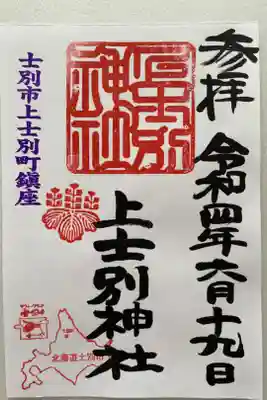 参拝 令和四年六月十九日
上士別神社
上士別神社
士別市上士別町鎮座
北海道士別市